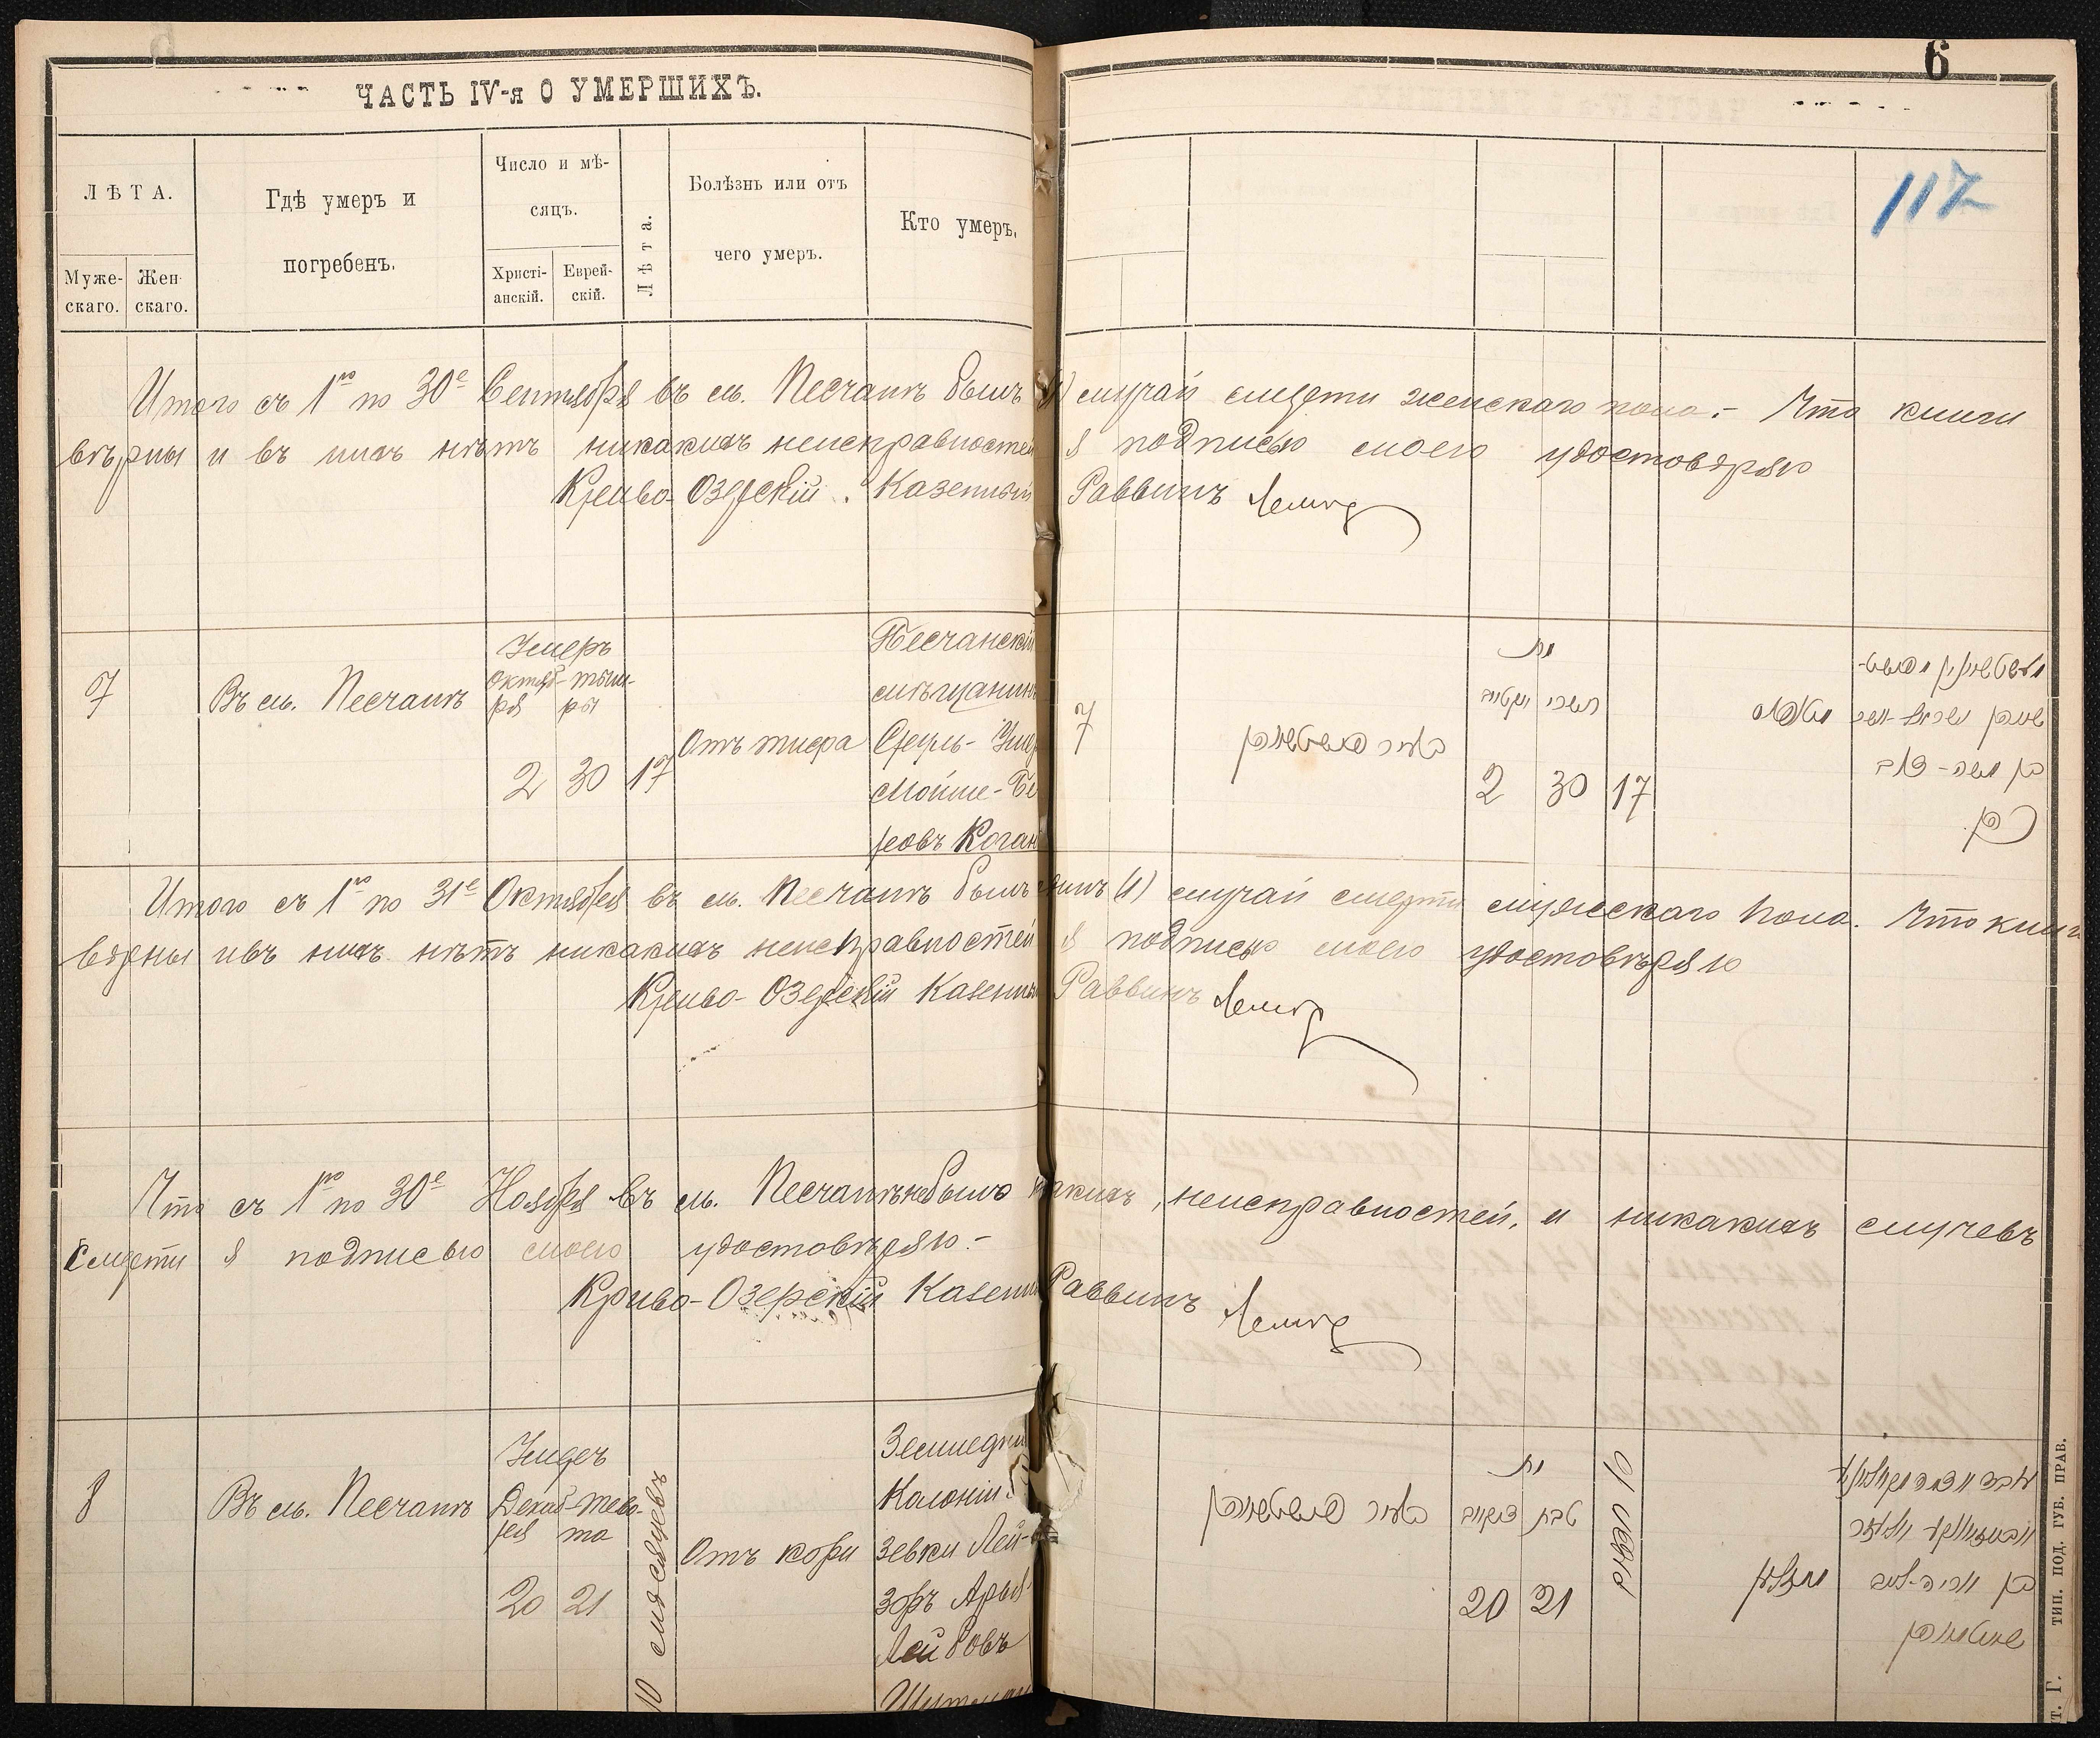 6
ЧАСТЬ IV-я О УМЕРШИХЪ.
117
ЛѢТА.
Муже-
скаго.
Жен-
скаго.
Гдѣ умеръ и
погребенъ.
Число и мѣ-
сяцъ.
Христі-
анскій.
Еврей-
скій.
Лѣта.
Болѣзнь или отъ
чего умеръ.
Кто умеръ.
Итого съ 1го по 30е Сентября въ м. Песчанъ былъ (1) случай смерти женскаго пола.- Что книги
вѣрны и въ нихъ нѣтъ никакихъ неисправностей я подписью моею удостовѣряю
Криво-Озерскій Казенный Раввинъ
7
Въ м. Песчанъ
Умеръ
Октяб-
ря
тыш-
ры
2
30
17
Отъ тифа
Песчанскій
мѣщанинъ
Сруль-Умер
Мойше-Бе
ровъ Коган
7
בעיר פעסטשאן
מת
אקטיאב
תשרי
2
30
17
בן משה-בער
כהן
Итого съ 1го по 31е Октября въ м. Песчанъ былъ одинъ (1) случай смерти мужскаго пола. Что книги
вѣрны и въ нихъ нѣтъ никакихъ неисправностей я подписью моею удостовѣряю
Криво-Озерскій Казенный Раввинъ
Что съ 1го по 30е Ноября въ м. Песчанъ небыло никакихъ, неисправностей, и никакихъ случевъ
Смерти я подписью моею удостовѣряю.-
Криво-Озерскій Казенный Раввинъ
8
Въ м. Песчанъ
Умеръ
Декаб-
ря
теве-
та
20
21
10 мѣсяцевъ
Отъ кори
Колоніи
Зевки Лей-
зоръ Арья
Лейбовъ
בעיר פעסטשאן
מת
דעקאב
טבת
20
21
10 חדשים
מאזלען
בן אריה-לייב